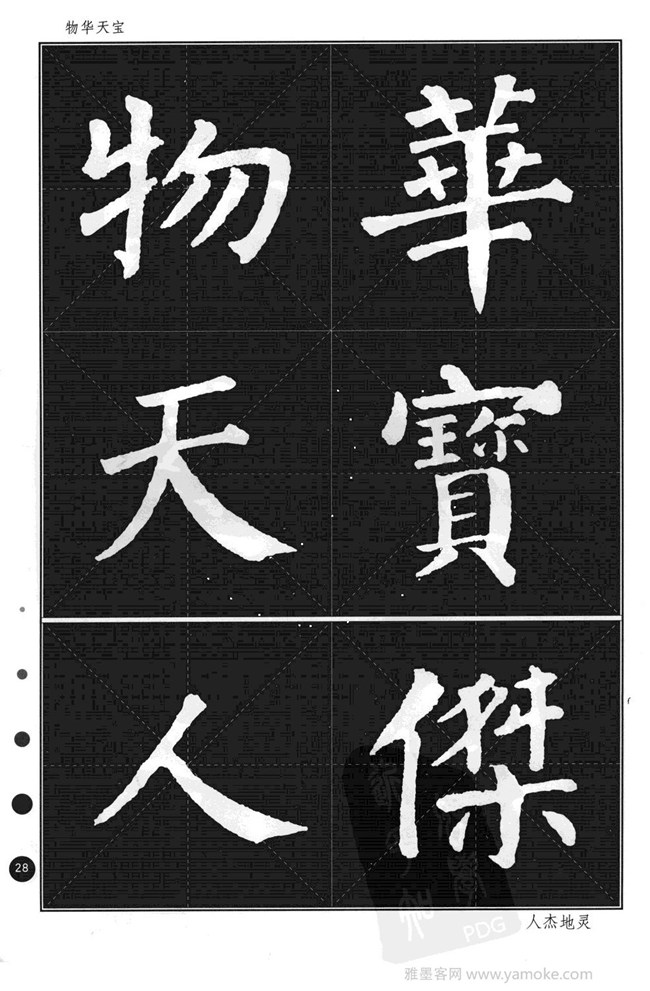 物华天宝
物華
天寶
人傑
28
人杰地灵
PDG
雅墨客网 www.yamoke.com